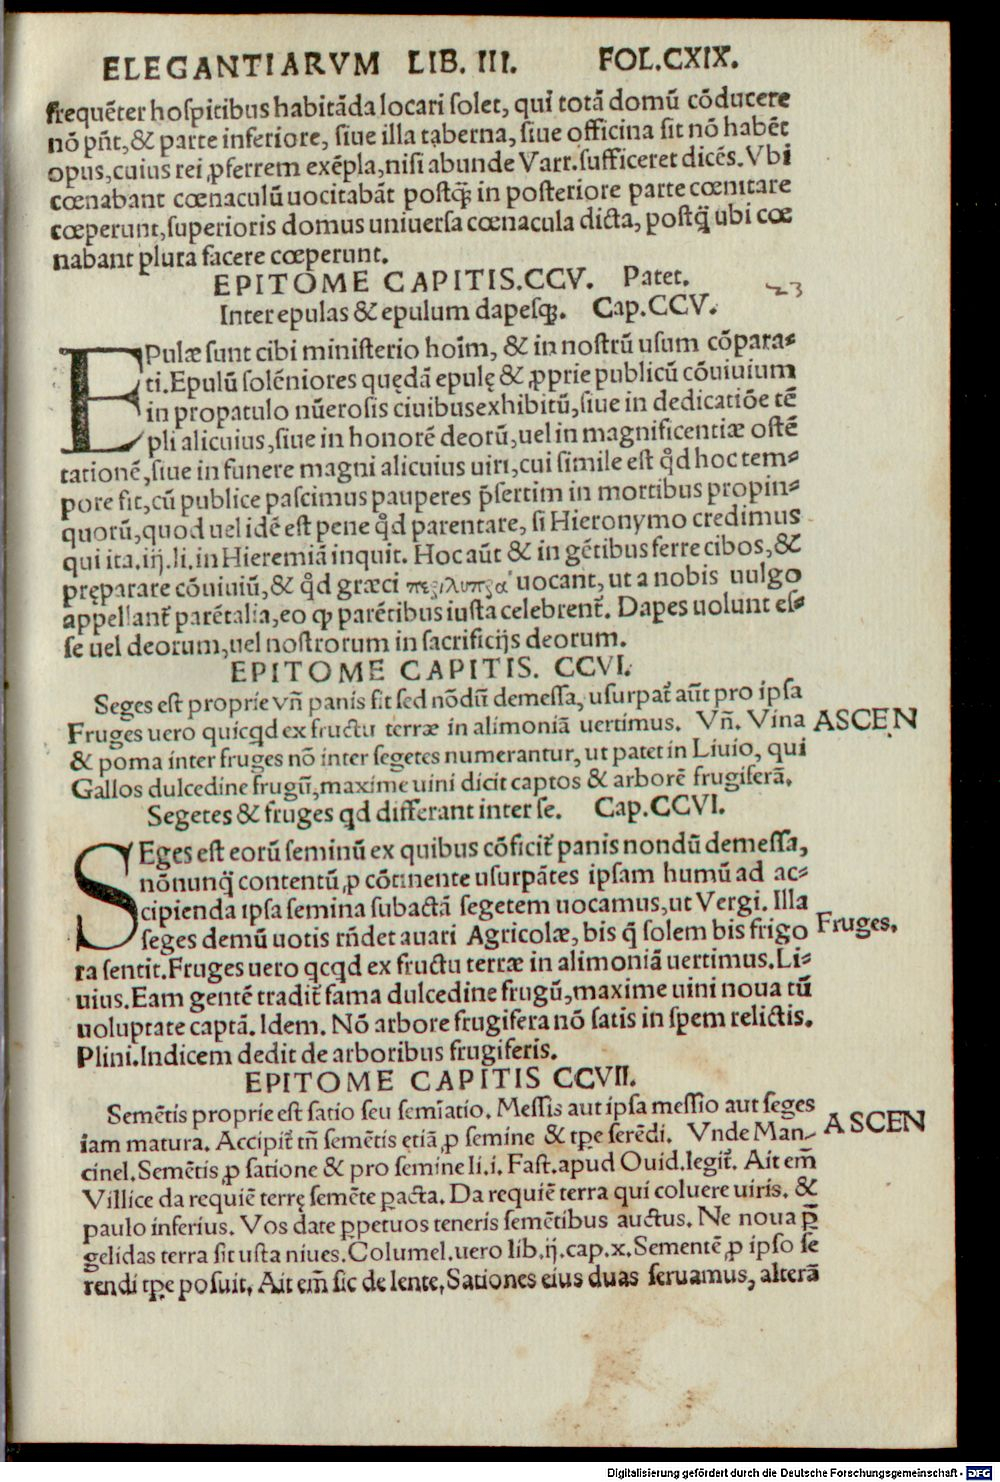 ELEGANTIARVM LIB. III. FOL.CXIX.
frequẽter hoſpitibus habitãda locari ſolet, qui totã domũ cõducere
nõ pñt, & parte inferiore, ſiue illa taberna, ſiue officina ſit nõ habẽt
opus, cuius rei ꝓferrem exẽpla, niſi abunde Varr. ſufficeret dicẽs. Vbi
cœnabant cœnaculũ uocitabãt poſtꝗ̃ in poſteriore parte cœnitare
cœperunt, ſuperioris domus uniuerſa cœnacula dicta, poſtꝗ̃ ubi cœ
nabant plura facere cœperunt.
EPITOME CAPITIS.CCV. Patet.
23
Inter epulas & epulum dapeſꝗ. Cap.CCV.
EPulæ ſunt cibi miniſterio hoĩm, & in noſtrũ uſum cõpara-
ti. Epulũ ſolẽniores quędã epulę & ꝓprie publicũ cõuiuium
in propatulo nũeroſis ciuibus exhibitũ, ſiue in dedicatiõe tẽ
pli alicuius, ſiue in honorẽ deorũ, uel in magnificentiæ oſtẽ
tationẽ, ſiue in funere magni alicuius uiri, cui ſimile eſt qd̉ hoc tem-
pore fit, cũ publice paſcimus pauperes p̃ſertim in mortibus propin-
quorũ, quod uel idẽ eſt pene qd̉ parentare, ſi Hieronymo credimus
qui ita.iij.li.in Hieremiã inquit. Hoc aũt & in gẽtibus ferre cibos, &
pręparare cõuiuiũ, & qd̉ græci περιλυπρα uocant, ut a nobis uulgo
appellant᷑ parẽtalia, eo ꝙ parẽtibus iuſta celebrent᷑. Dapes uolunt eſ-
ſe uel deorum, uel noſtrorum in ſacrificijs deorum.
EPITOME CAPITIS. CCVI.
Seges eſt proprie vñ panis fit ſed nõdũ demeſſa, uſurpat᷑ aũt pro ipſa
Fruges uero quicqd ex fructu terræ in alimoniã uertimus. Vñ. Vina ASCEN
& poma inter fruges nõ inter ſegetes numerantur, ut patet in Liuio, qui
Gallos dulcedine frugũ, maxime uini dicit captos & arborẽ frugiferã.
Segetes & fruges qd differant inter ſe. Cap.CCVI.
SEges eſt eorũ ſeminũ ex quibus cõficit᷑ panis nondũ demeſſa,
nõnunꝗ̃ contentũ ꝓ cõtinente uſurpãtes ipſam humũ ad ac-
cipienda ipſa ſemina ſubactã ſegetem uocamus, ut Vergi. Illa
ſeges demũ uotis rñdet auari Agricolæ, bis q̃ ſolem bis frigo Fruges.
ra ſentit. Fruges uero qcqd ex fructu terræ in alimoniã uertimus. Li-
uius. Eam gentẽ tradit᷑ fama dulcedine frugũ, maxime uini noua tũ
uoluptate captã. Idem. Nõ arbore frugifera nõ ſatis in ſpem relictis.
Plini. Indicem dedit de arboribus frugiferis.
EPITOME CAPITIS CCVII.
Semẽtis proprie eſt ſatio ſeu ſemĩatio. Meſſis aut ipſa meſſio aut ſeges
iam matura. Accipit᷑ tñ ſemẽtis etiã ꝓ ſemine & tꝑe ſerẽdi. Vnde Man- ASCEN
cinel. Semẽtis ꝓ ſatione & pro ſemine li.i. Faſt. apud Ouid. legit᷑. Ait em̃
Villice da requiẽ terrę ſemẽte ꝑacta. Da requiẽ terra qui coluere uiris. &
paulo inferius. Vos date ꝑpetuos teneris ſemẽtibus auctus. Ne noua ꝑ̃
gelidas terra ſit uſta niues. Columel. uero lib.ij.cap.x. Sementẽ ꝓ ipſo ſe
rendi tꝑe poſuit. Ait em̃ ſic de lente, Sationes eius duas ſeruamus, alterã
Digitalisierung gefördert durch die Deutsche Forschungsgemeinschaft - DFG